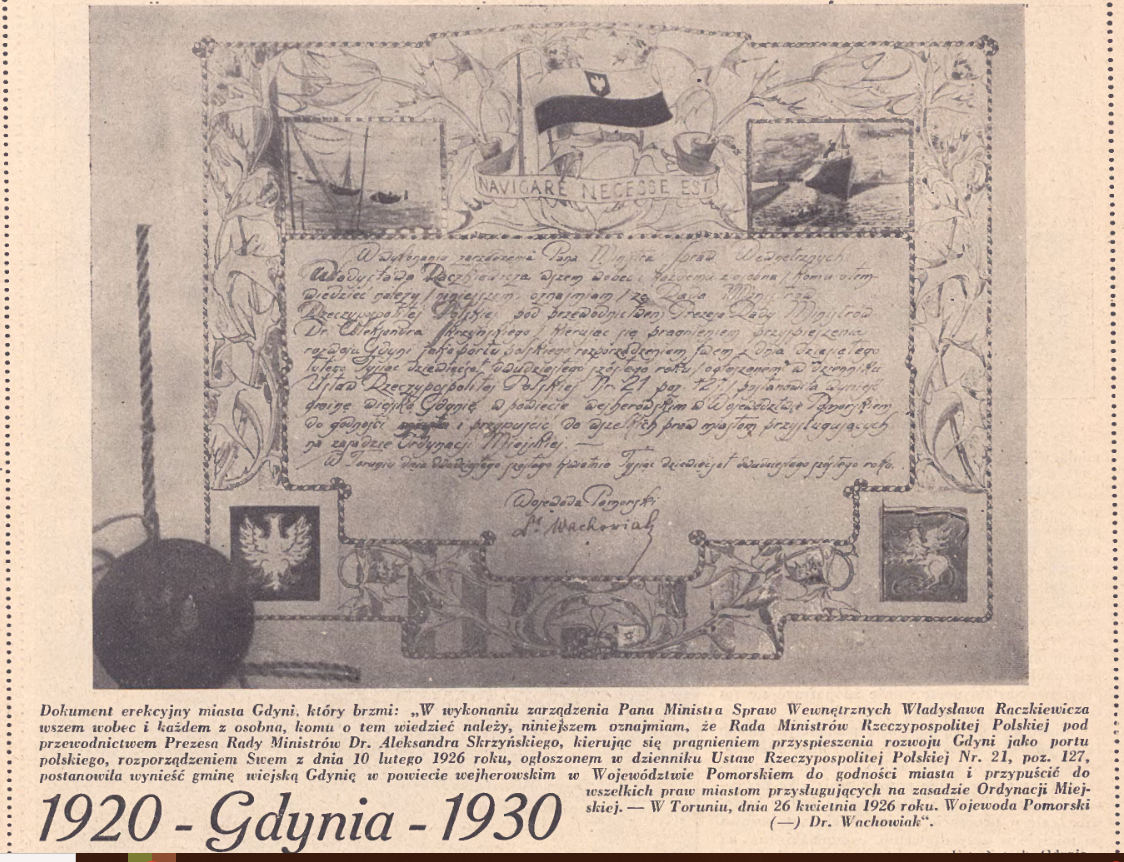 NAVIGARE NECESSE EST
W wykonaniu zarządzenia Pana Ministra Spraw Wewnętrznych
Władysława Raczkiewicza wszem wobec i każdemu z osobna, komu o tem
wiedzieć należy, niniejszem oznajmiam, że Rada Ministrów
Rzeczypospolitej Polskiej pod przewodnictwem Prezesa Rady Ministrów
Dr. Aleksandra Skrzyńskiego, kierując się pragnieniem przyspieszenia
rozwoju Gdyni jako portu polskiego rozporządzeniem Swem z dnia dziesiątego
lutego Tysiąc dziewięćset dwudziestego szóstego roku, ogłoszonem w dzienniku
Ustaw Rzeczypospolitej Polskiej Nr. 21 poz. 127, postanowiła wynieść
gminę wiejską Gdynię w powiecie wejherowskim w Województwie Pomorskiem
do godności miasta i przypuścić do wszelkich praw miastom przysługujących
na zasadzie Ordynacji Miejskiej. —
W Toruniu dnia dwudziestego szóstego kwietnia Tysiąc dziewięćset dwudziestego szóstego roku.
Wojewoda Pomorski
Dr Wachowiak
Dokument erekcyjny miasta Gdyni, który brzmi: „W wykonaniu zarządzenia Pana Ministra Spraw Wewnętrznych Władysława Raczkiewicza
wszem wobec i każdem z osobna, komu o tem wiedzieć należy, niniejszem oznajmiam, że Rada Ministrów Rzeczypospolitej Polskiej pod
przewodnictwem Prezesa Rady Ministrów Dr. Aleksandra Skrzyńskiego, kierując się pragnieniem przyspieszenia rozwoju Gdyni jako portu
polskiego, rozporządzeniem Swem z dnia 10 lutego 1926 roku, ogłoszonem w dzienniku Ustaw Rzeczypospolitej Polskiej Nr. 21, poz. 127,
postanowiła wynieść gminę wiejską Gdynię w powiecie wejherowskim w Województwie Pomorskim do godności miasta i przypuścić do
wszelkich praw miastom przysługujących na zasadzie Ordynacji Miej-
skiej. — W Toruniu, dnia 26 kwietnia 1926 roku. Wojewoda Pomorski
(—) Dr. Wachowiak“.
1920 - Gdynia - 1930